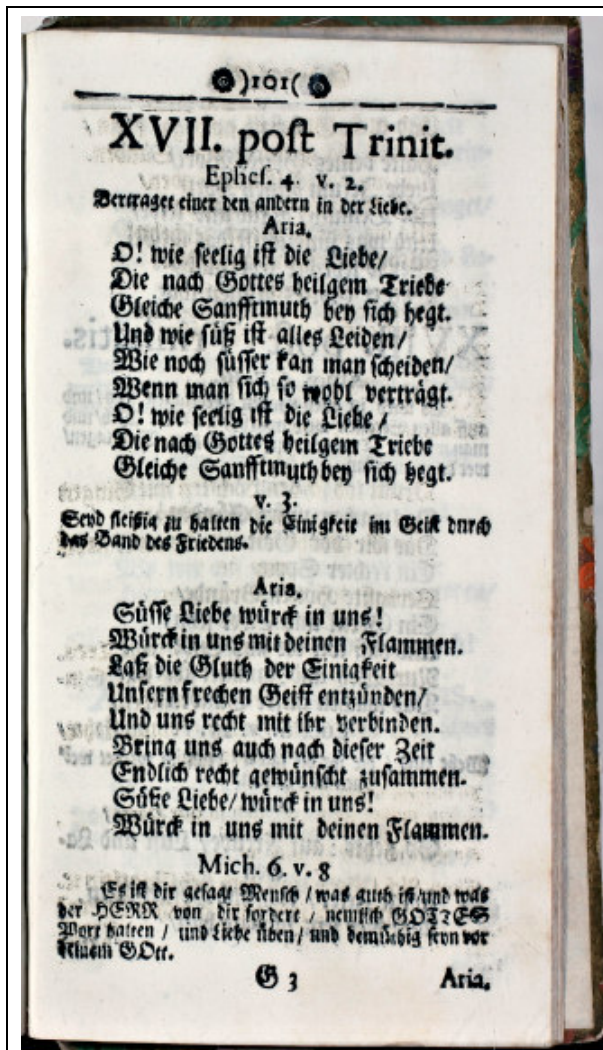 )101(
XVII. post Trinit.
Ephes. 4. v. 2.
Vertraget einer den andern in der Liebe.
Aria.
O! wie seelig ist die Liebe/
Die nach Gottes heilgem Triebe
Gleiche Sanfftmuth bey sich hegt.
Und wie süß ist alles Leiden/
Wie noch süsser kan man scheiden/
Wenn man sich so wohl verträgt.
O! wie seelig ist die Liebe/
Die nach Gottes heilgem Triebe
Gleiche Sanfftmuth bey sich hegt.
v. 3.
Seyd fleißig zu halten die Einigkeit im Geist durch
das Band des Friedens.
Aria.
Süsse Liebe würck in uns!
Würck in uns mit deinen Flammen.
Laß die Gluth der Einigkeit
Unsern frechen Geist entzünden/
Und uns recht mit ihr verbinden.
Bring uns auch nach dieser Zeit
Endlich recht gewünscht zusammen.
Süße Liebe/ würck in uns!
Würck in uns mit deinen Flammen.
Mich. 6. v. 8
Es ist dir gesagt Mensch / was guth ist/und was
der HERR von dir fordert / nemlich GOTTES
Wort halten / und Liebe üben/ und demüthig seyn vor
deinem GOtt.
G 3 Aria.